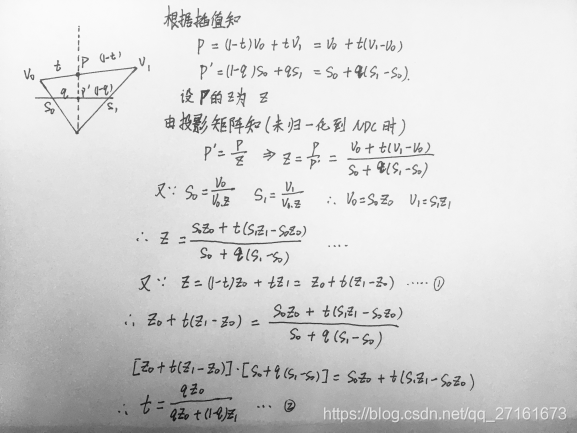 根据插值知
P = (1-t)V₀ + tV₁ = V₀ + t(V₁-V₀)
P' = (1-q)S₀ + qS₁ = S₀ + q(S₁-S₀).
设P的Z为 Z
由投影矩阵知(未归一化到NDC时)
P' = P/Z ⇒ Z = P/P' = (V₀ + t(V₁-V₀))/(S₀ + q(S₁-S₀))
又∵ S₀ = V₀/V₀.Z S₁ = V₁/V₀.Z ∴ V₀=S₀Z₀ V₁=S₁Z₁
∴ Z = (S₀Z₀ + t(S₁Z₁-S₀Z₀))/(S₀ + q(S₁-S₀)) ····
又∵ Z = (1-t)Z₀ + tZ₁ = Z₀ + t(Z₁-Z₀) ····· ①
∴ Z₀ + t(Z₁-Z₀) = (S₀Z₀ + t(S₁Z₁-S₀Z₀))/(S₀ + q(S₁-S₀))
[Z₀ + t(Z₁-Z₀)]·[S₀ + q(S₁-S₀)] = S₀Z₀ + t(S₁Z₁-S₀Z₀)
∴ t = qZ₀/(qZ₀ + (1-q)Z₁) ··· ②
V₀ t P (1-t) V₁
S₀ q P' (1-q) S₁
https://blog.csdn.net/qq_27161673